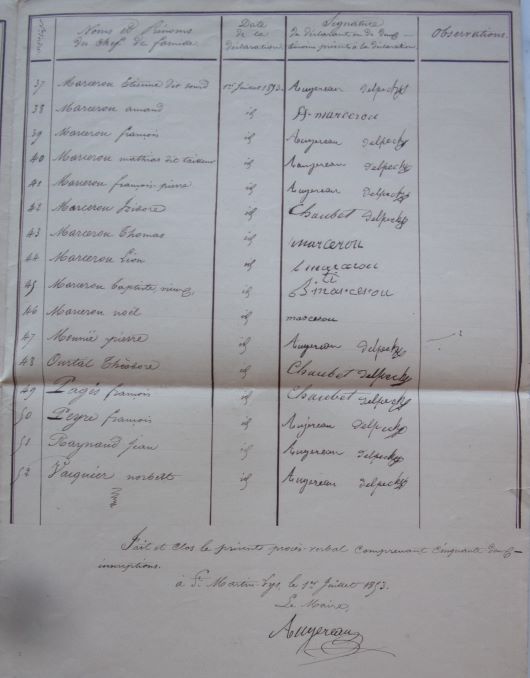 Noms et Prénoms du Chef de famille
Date de la déclaration
Signature du déclarant ou de deux témoins présents à la déclaration
Observations.
37 Marcerou Etienne dit sourd 1er Juillet 1893. Augereau Delpech
38 Marcerou amand id A. marcerou
39 Marcerou françois id Augereau Delpech
40 Marcerou mathias dit Augereau Delpech
41 Marcerou françois-pierre id Augereau Delpech
42 Marcerou Isidore id Chaubet Delpech
43 Marcerou Thomas id marcerou
44 Marcerou Léon id L marcerou
45 Marcerou baptiste, id B. marcerou
46 Marcerou noël id marcerou
47 pierre id Augereau Delpech
48 Ourtal Théodore id Chaubet Delpech
49 Pagès françois id Chaubet Delpech
50 Peyre françois id Augereau Delpech
51 Raynaud Jean id Augereau Delpech
52 Vaquier norbert id Augereau Delpech
Fait et clos le présent procès-verbal comprenant cinquante deux
inscriptions.
à St Martin-Lys, le 1er Juillet 1893.
Le Maire,
Augereau